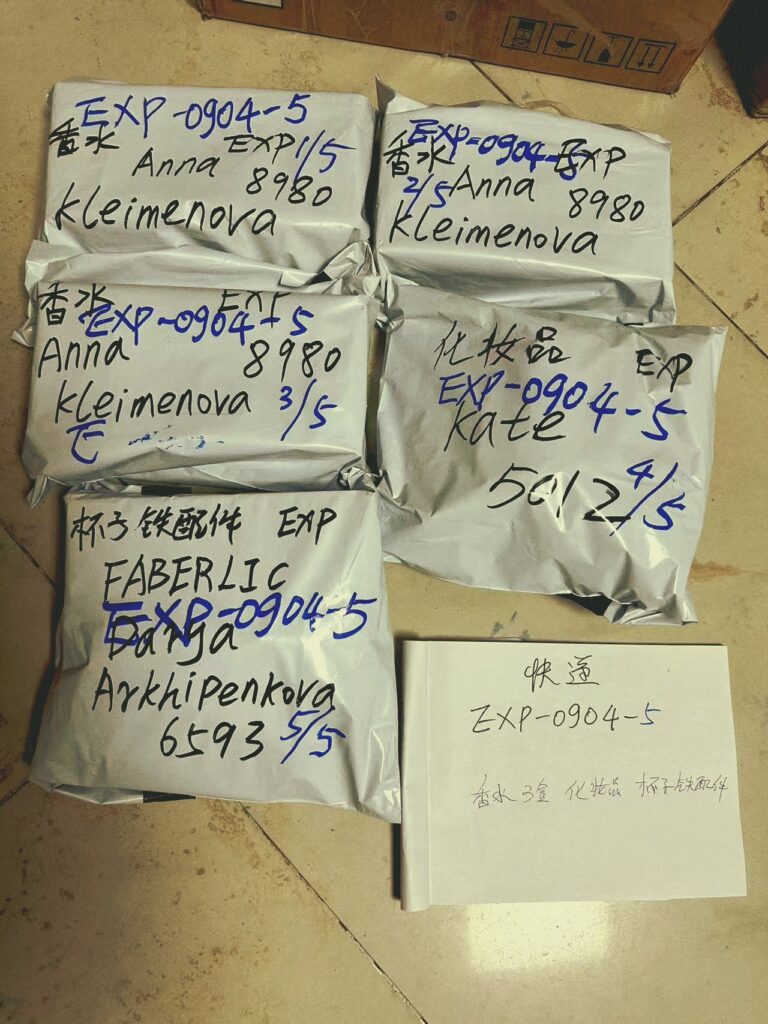 EXP-0904-5
香水 EXP 1/5
Anna 8980
Kleimenova
EXP-0904-5
香水 EXP
2/5 Anna 8980
Kleimenova
香水 EXP
EXP-0904-5
Anna 8980
Kleimenova 3/5
化妆品 EXP
EXP-0904-5
Kate
5012 4/5
杯子 铁配件 EXP
FABERLIC
EXP-0904-5
Darja
Arkhipenkova
6593 5/5
快递
EXP-0904-5
香水 3盒 化妆品 杯子 铁配件